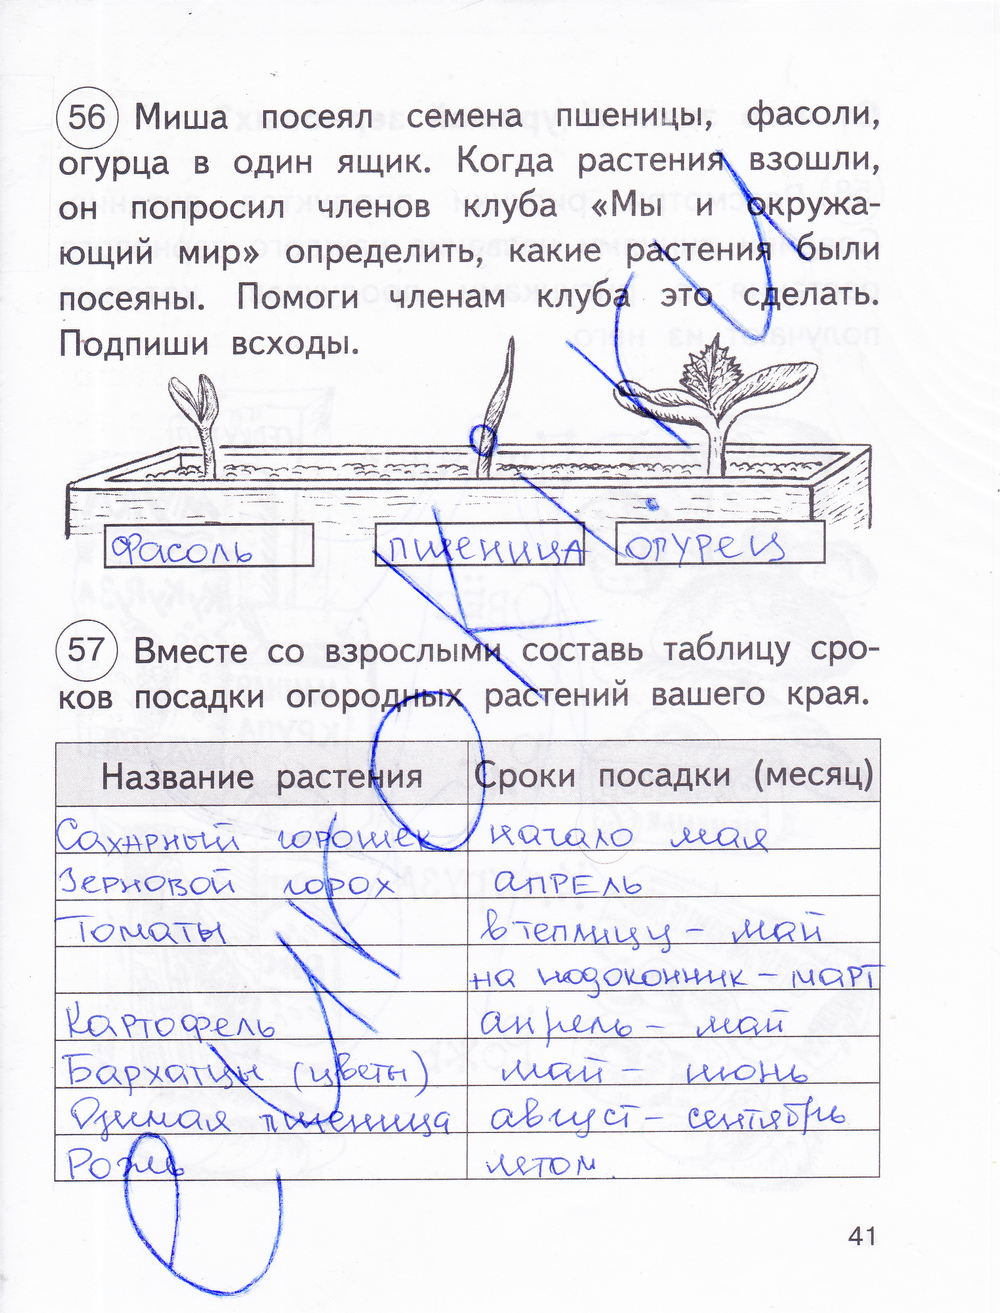 56 Миша посеял семена пшеницы, фасоли,
огурца в один ящик. Когда растения взошли,
он попросил членов клуба «Мы и окружа-
ющий мир» определить, какие растения были
посеяны. Помоги членам клуба это сделать.
Подпиши всходы.
фасоль пшеница огурец
57 Вместе со взрослыми составь таблицу сро-
ков посадки огородных растений вашего края.
Название растения Сроки посадки (месяц)
Сахарный горошек начало мая
Зерновой горох апрель
Томаты в теплицу - май
на подоконник - март
Картофель апрель - май
Бархатцы (цветы) май - июнь
пшеница август - сентябрь
Рожь летом
41